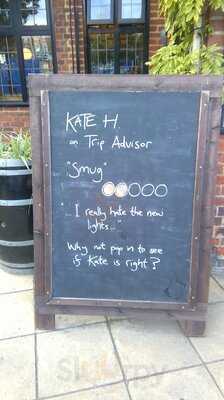 KATE H.
on Trip Advisor
"Smug"
"... I really hate the new
lights...
Why not pop in to see
if Kate is right?
Sluurpy